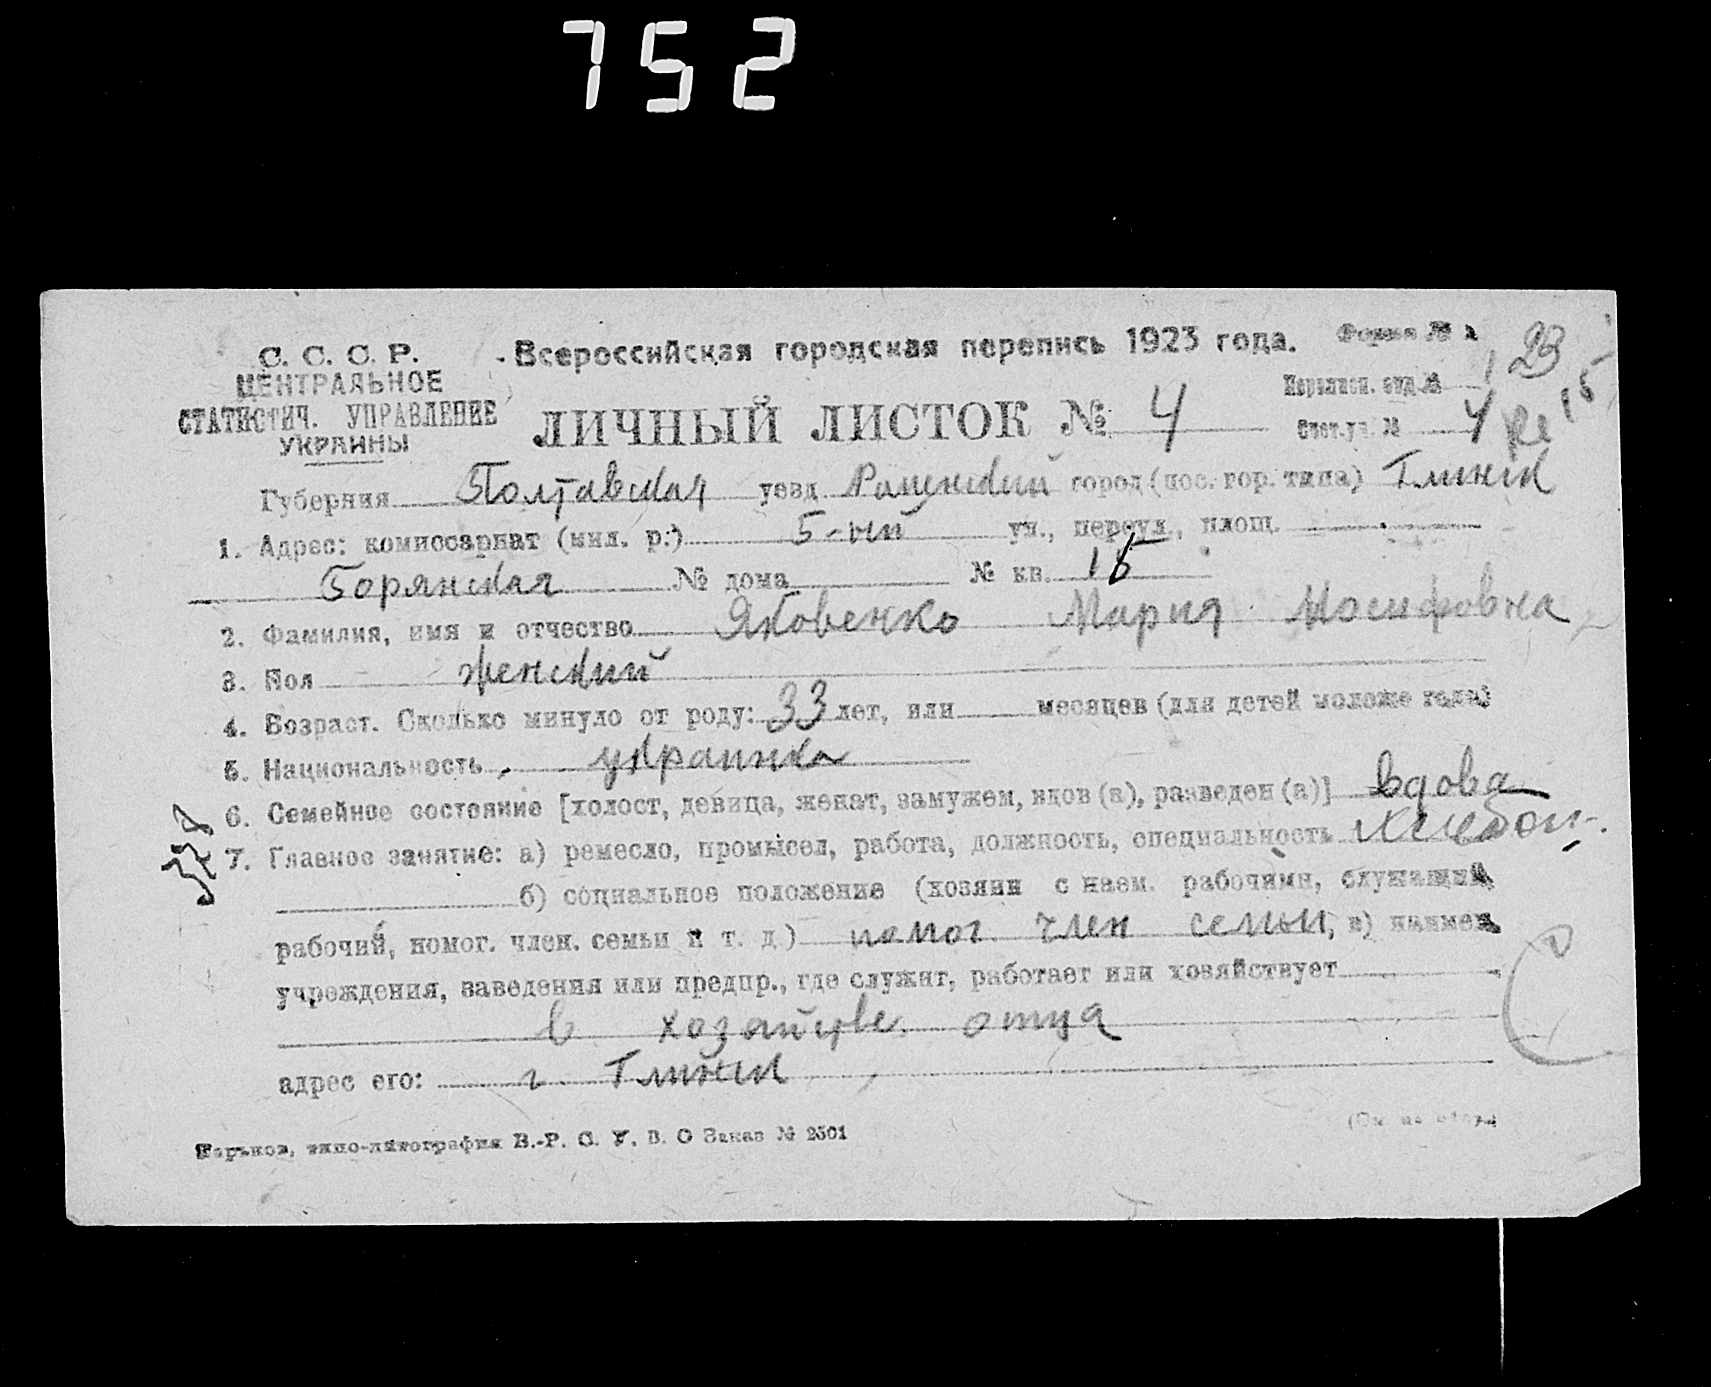 752
С. С. С. Р.
ЦЕНТРАЛЬНОЕ
СТАТИСТИЧ. УПРАВЛЕНИЕ
УКРАИНЫ
Всероссийская городская перепись 1923 года.
Форма № 1
23
Переписн. отд. № 1
15
ЛИЧНЫЙ ЛИСТОК № 4
Счет.уч. № 4
Губерния Полтавская уезд Роменский город (пос. гор. типа) Глинск
1. Адрес: комиссариат (мил. р.) 5-ый ул., переул., площ.
Борянская № дома № кв. 15
2. Фамилия, имя и отчество Яковенко Мария Иосифовна
3. Пол женский
4. Возраст. Сколько минуло от роду: 33 лет, или месяцев (для детей моложе года)
5. Национальность украинка
6. Семейное состояние [холост, девица, женат, замужем, вдов (а), разведен (а)] вдова
7. Главное занятие: а) ремесло, промысел, работа, должность, специальность хлебоп.
б) социальное положение (хозяин с наем. рабочими, служащий,
рабочий, помог. член. семьи и т. д.) помог член семьи, в) наимен.
учреждения, заведения или предпр., где служит, работает или хозяйствует
в хозайстве отца
адрес его: г Глинск
Харьков, типо-литография В.-Р. С. У. В. О Заказ № 2501
(См на обор.)